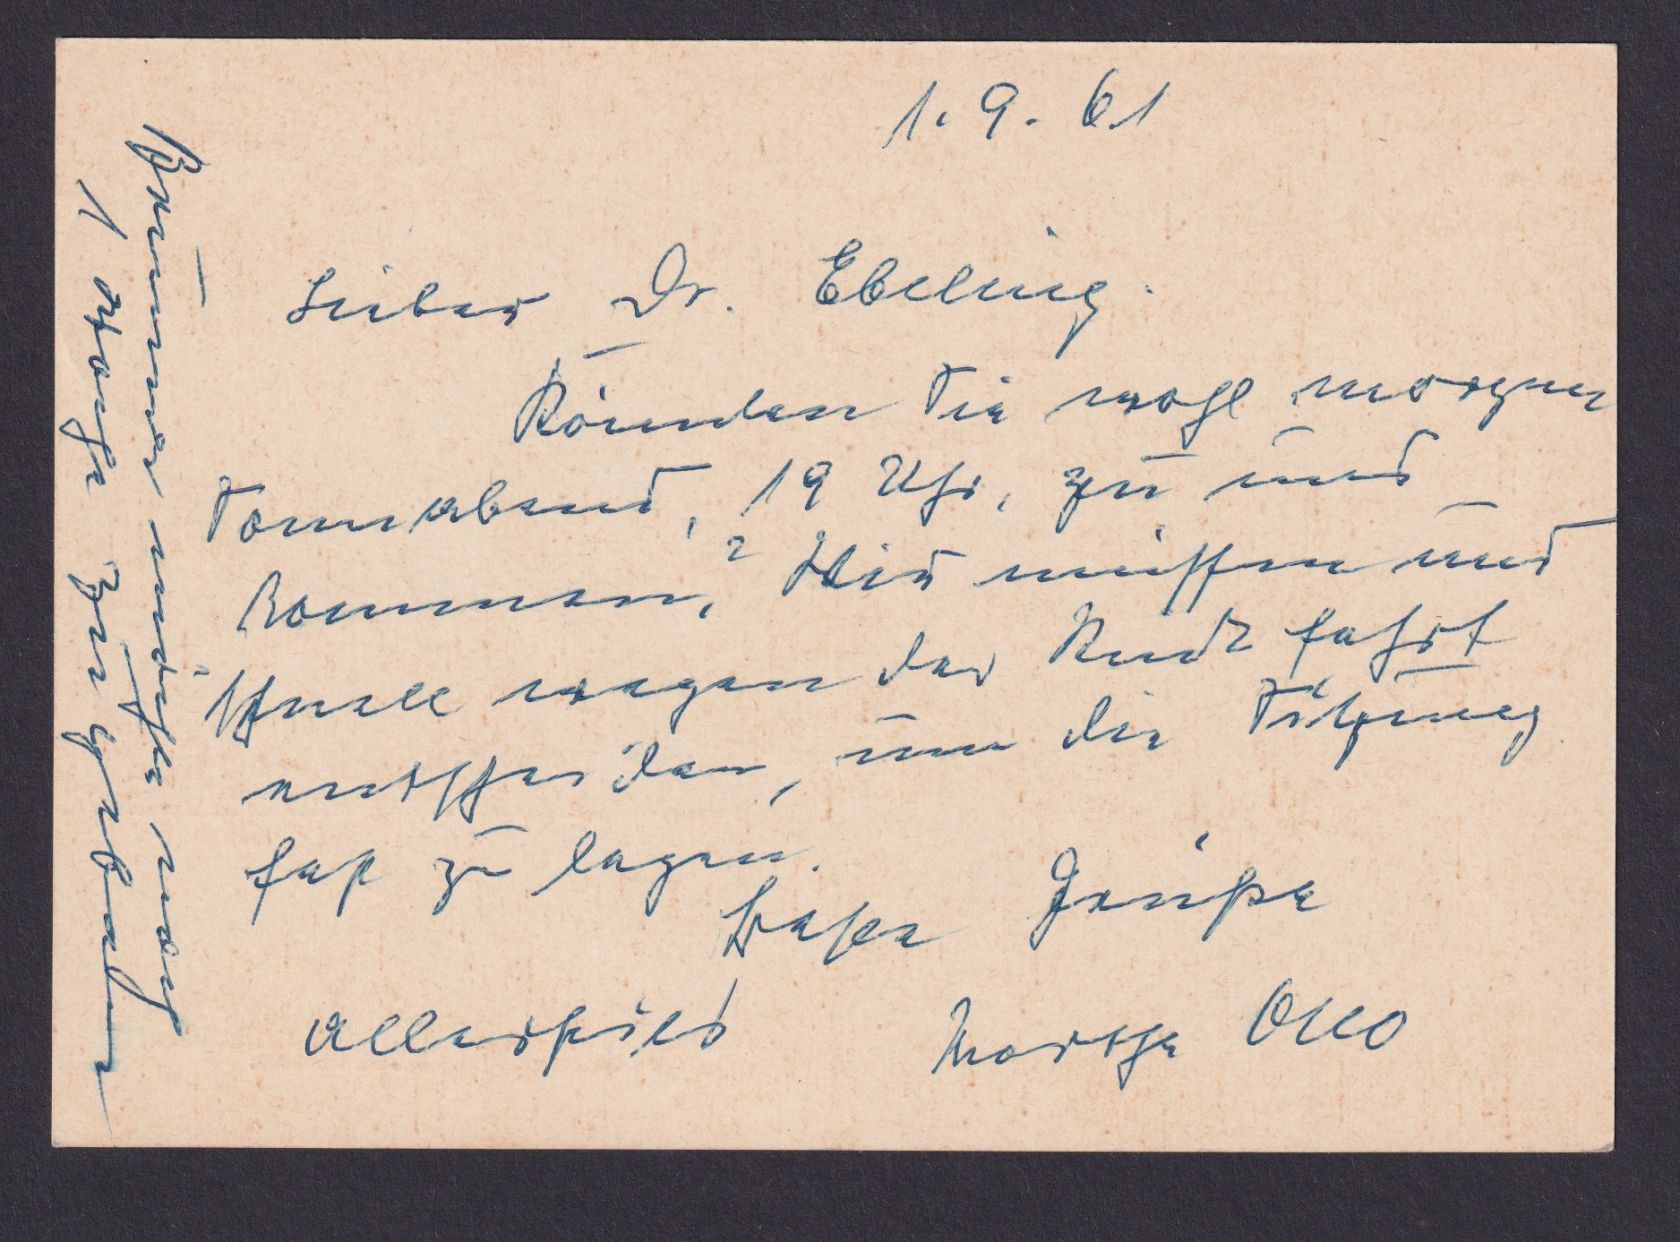 1. 9. 61
Lieber Dr. Ebeling.
Könnten Sie wohl morgen
Sonnabend, 19 Uhr, zu uns
kommen? Wir müssen uns
schnell wegen der Rundfahrt
entscheiden, um die Sitzung
fest zu legen.
Beste Grüße
allerseits Marthe Otto
Brümmer möchte noch
1 Woche